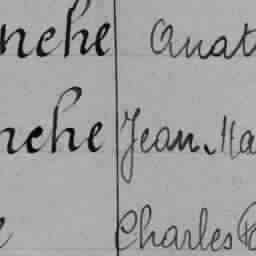 nche Anat
nche Jean Ma
e Charles